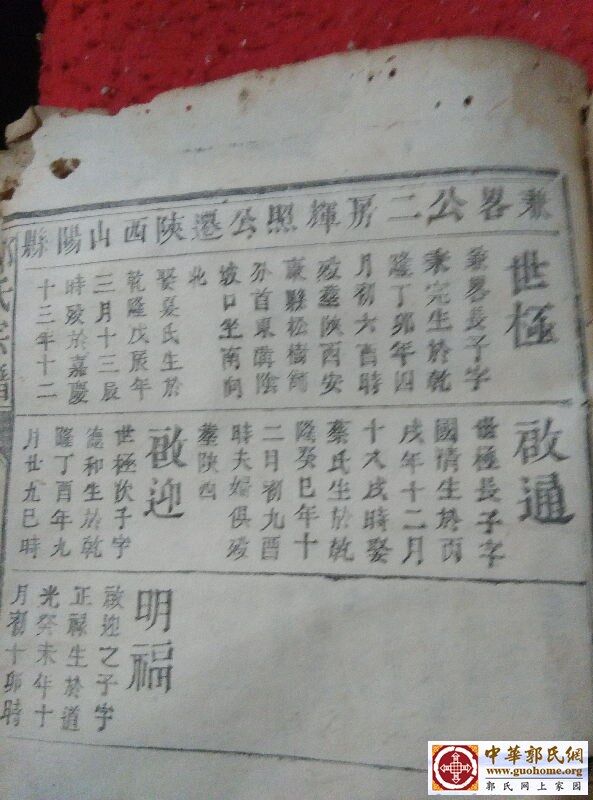 兼畧公二房輝照公遷陝西山陽縣
世極
兼畧長子字
秉完生於乾
隆丁卯年四
月初六酉時
歿葬陝西安
康縣松樹
分首東溝陰
坡口坐南向
北
娶夏氏生於
乾隆戊辰年
三月十三辰
時歿於嘉慶
十三年十二
啟通
世極長子字
國情生於丙
戌年十二月
十八戌時娶
蔡氏生於乾
隆癸巳年十
二月初九酉
時夫婦俱歿
葬陝西
啟迎
世極次子字
德和生於乾
隆丁酉年九
月廿九巳時
明福
啟迎之子字
正祿生於道
光癸未年十
月初十卯時
氏宗譜
中華郭氏網
www.guohome.org
郭氏网上家园